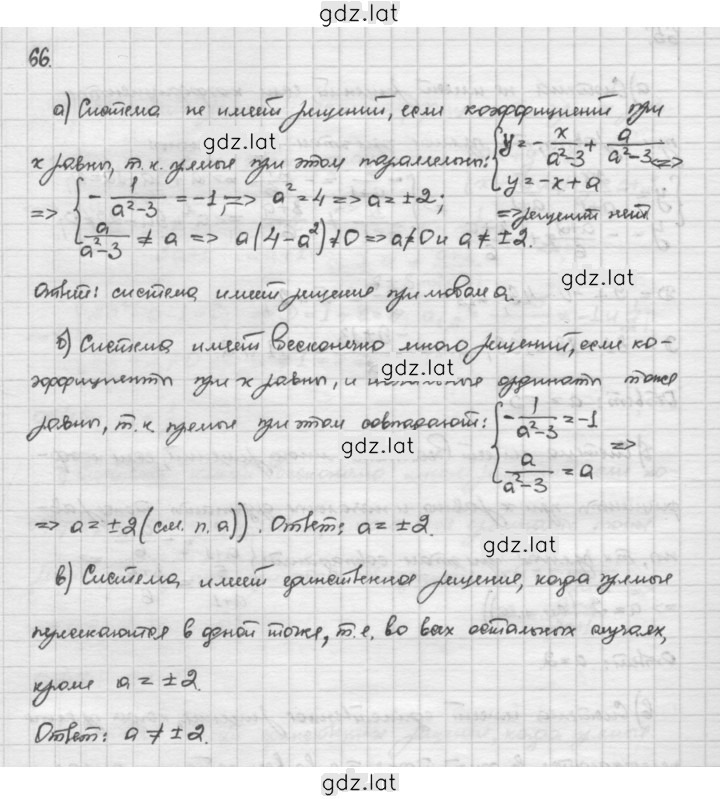 gdz.lat
66.
а) Система не имеет решений, если коэффициент при
gdz.lat
x равны, т.к. прямые при этом параллельны: { y = - x/(a²-3) + a/(a²-3) <=>
y = -x + a
=> { - 1/(a²-3) = -1, => a² = 4 => a = ±2; => решений нет
a/(a²-3) ≠ a => a(4-a²) ≠ 0 => a ≠ 0 и a ≠ ±2.
gdz.lat
Ответ: система имеет решение при любом a.
б) Система имеет бесконечно много решений, если ко-
gdz.lat
эффициенты при x равны, и начальные ординаты тоже
равны, т.к. прямые при этом совпадают: { - 1/(a²-3) = -1
gdz.lat
a/(a²-3) = a =>
=> a = ±2 (см. п. а)). Ответ: a = ±2.
gdz.lat
в) Система имеет единственное решение, когда прямые
пересекаются в одной точке, т.е. во всех остальных случаях,
кроме a = ±2.
Ответ: a ≠ ±2.
gdz.lat